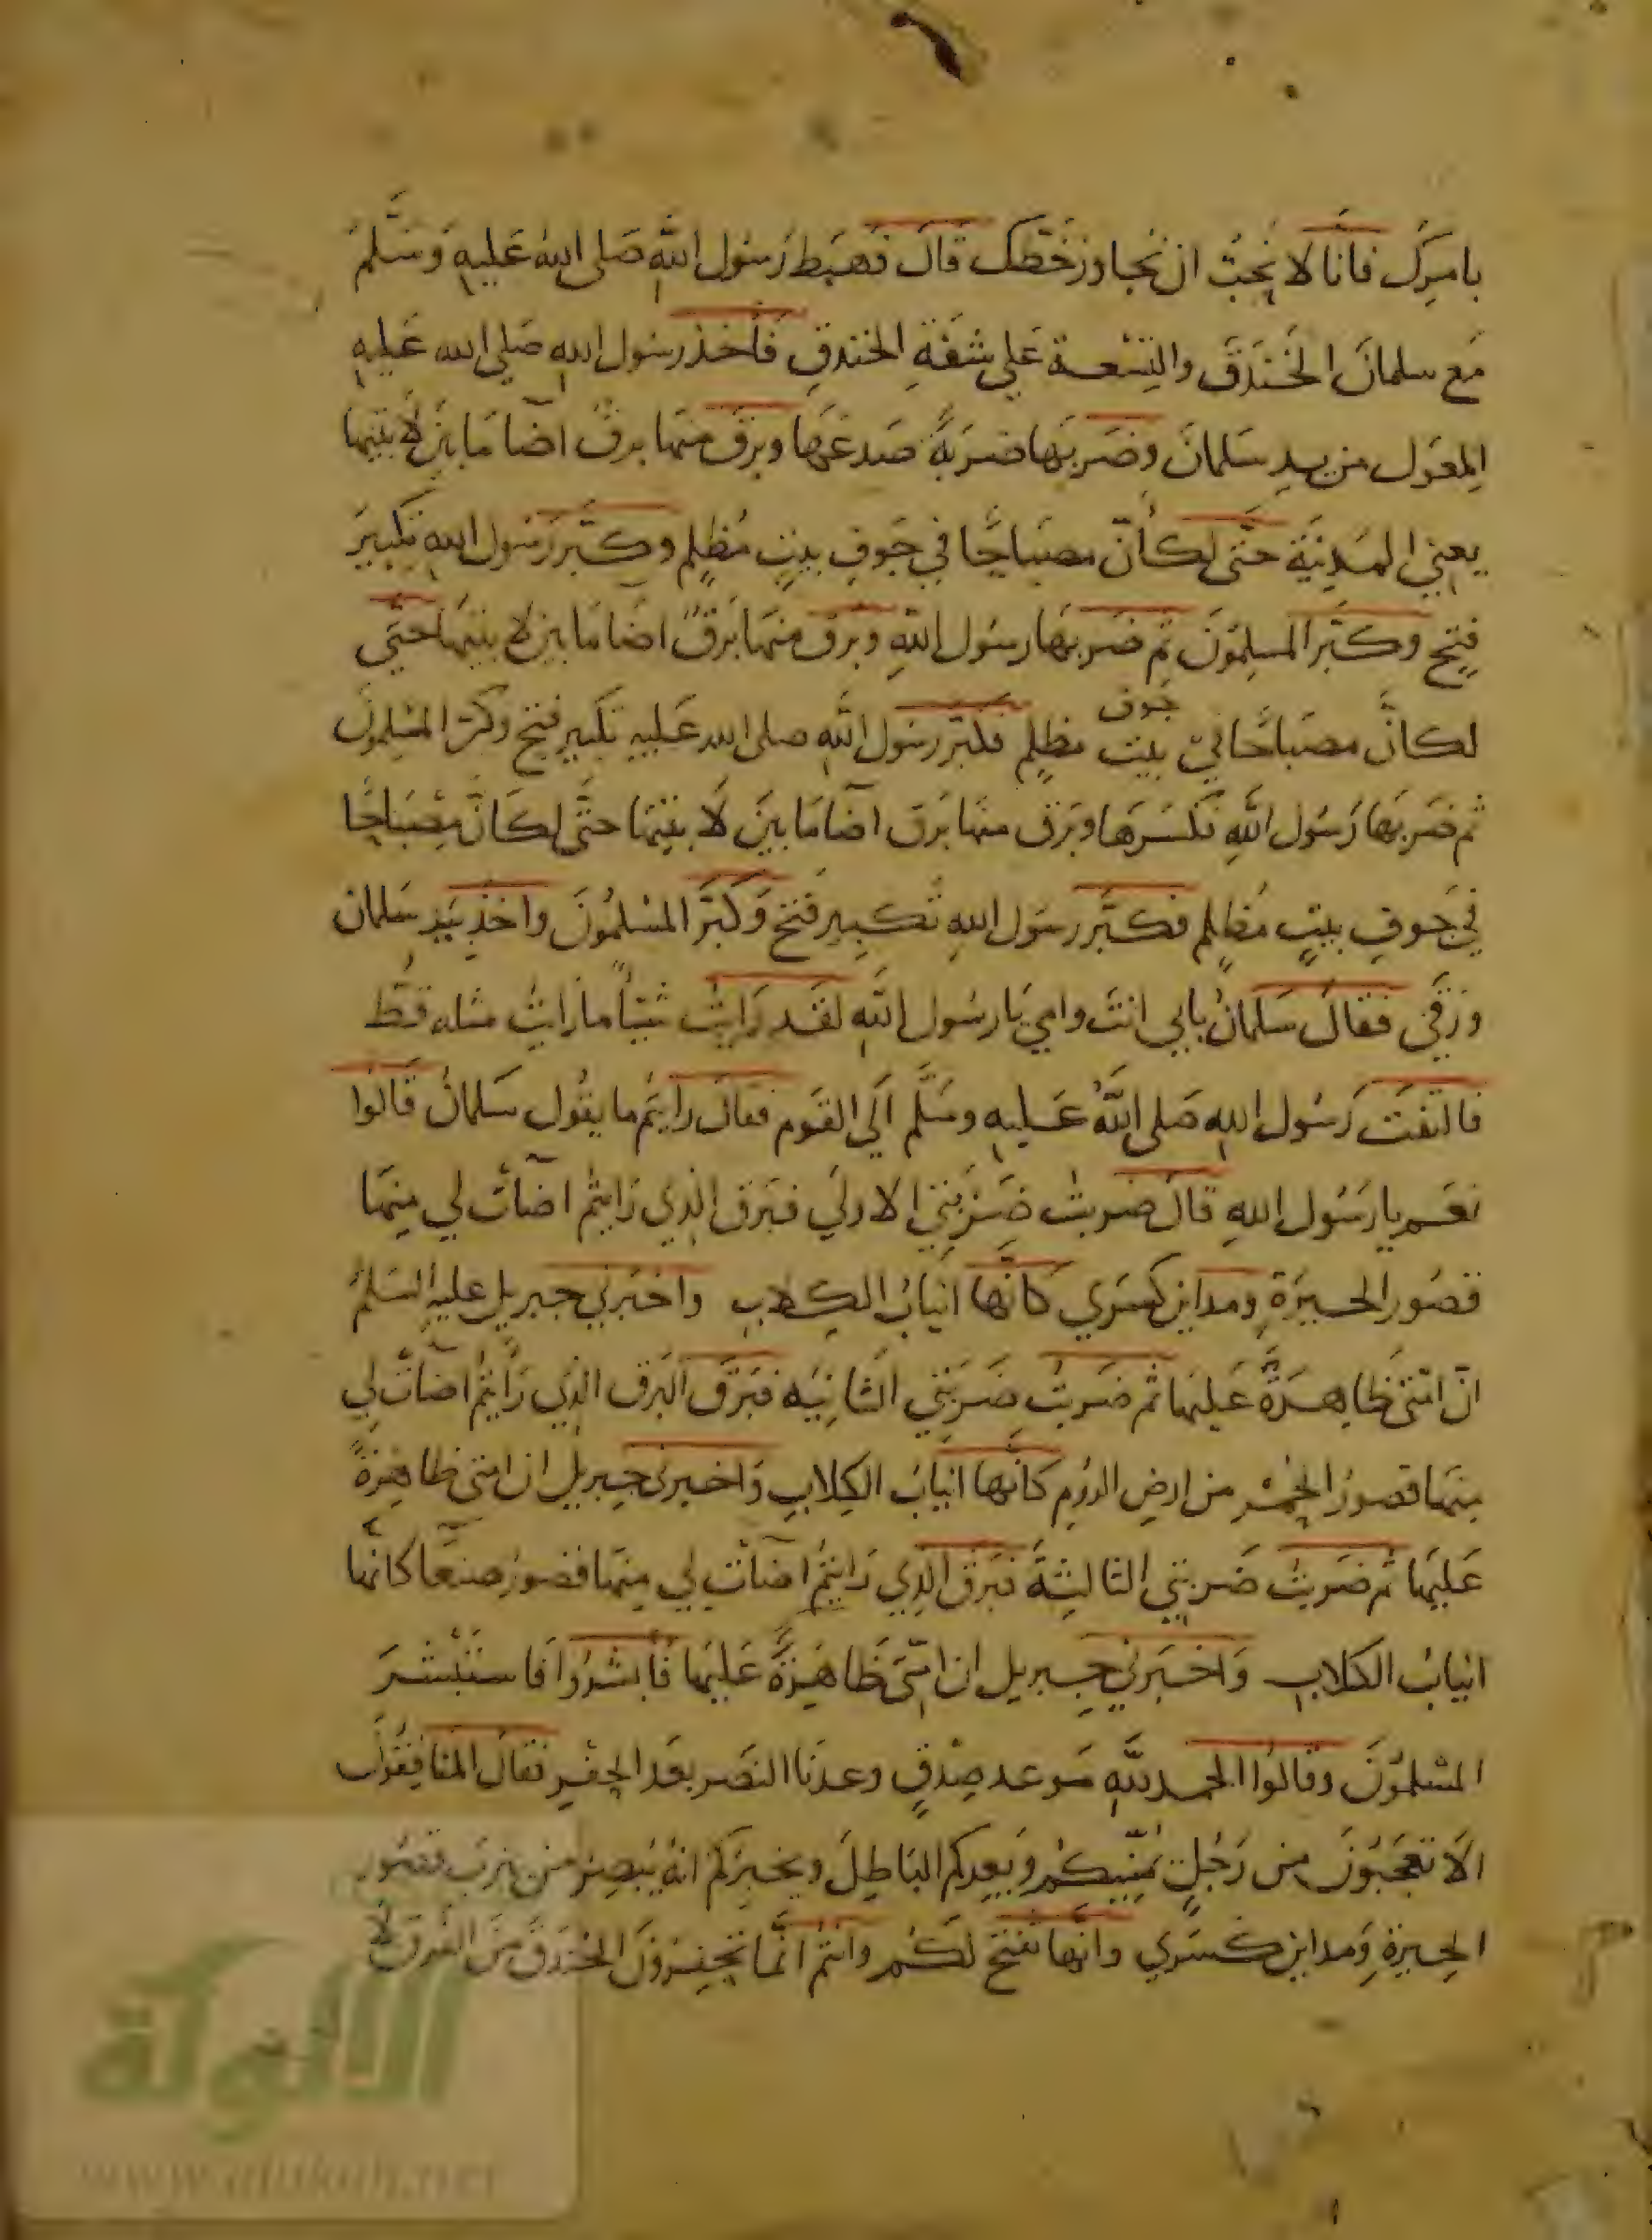 بامرك فانا لا نحب ان نجاوز خطك قال فهبط رسول الله صلى الله عليه وسلم
مع سلمان الخندق والتسعة على شفة الخندق فاخذ رسول الله صلى الله عليه
المعول من يد سلمان وضربها ضربة صدعها وبرق منها برق اضا ما بين لابتيها
يعني المدينة حتى لكأن مصباحا في جوف بيت مظلم وكبر رسول الله تكبير
فتح وكبر المسلمون ثم ضربها رسول الله وبرق منها برق اضا ما بين لابتيها حتى
لكان مصباحا في جوف بيت مظلم فكبر رسول الله صلى الله عليه تكبير فتح وكبر المسلمون
ثم ضربها رسول الله فكسرها وبرق منها برق اضا ما بين لابتيها حتى لكان مصباحا
في جوف بيت مظلم فكبر رسول الله تكبير فتح وكبر المسلمون واخذ بيد سلمان
ورقي فقال سلمان بابي انت وامي يا رسول الله لقد رايت شيئا ما رايت مثله قط
فالتفت رسول الله صلى الله عليه وسلم الى القوم فقال رايتم ما يقول سلمان قالوا
نعم يا رسول الله قال ضربت ضربتي الاولي فبرق الذي رايتم اضات لي منها
قصور الحيرة ومداين كسري كانها انياب الكلاب واخبرني جبريل عليه السلم
ان امتى ظاهرة عليها ثم ضربت ضربتي الثانيه فبرق البرق الذي رايتم اضات لي
منها قصور الحمر من ارض الروم كانها انياب الكلاب واخبرني جبريل ان امتى ظاهرة
عليها ثم ضربت ضربتي الثالثة فبرق الذي رايتم اضات لي منها قصور صنعا كانها
انياب الكلاب واخبرني جبريل ان امتى ظاهرة عليها فأبشروا فاستبشر
المسلمون وقالوا الحمد لله موعد صدق وعدنا النصر بعد الحفر فقال المنافقون
الا تعجبون من رجل يمنيكم ويعدكم الباطل ويخبركم انه يبصر من يثرب قصور
الحيرة ومداين كسري وانها تفتح لكم وانتم انما تحفرون الخندق من الفرق لا
الالوكة
www.alukah.net